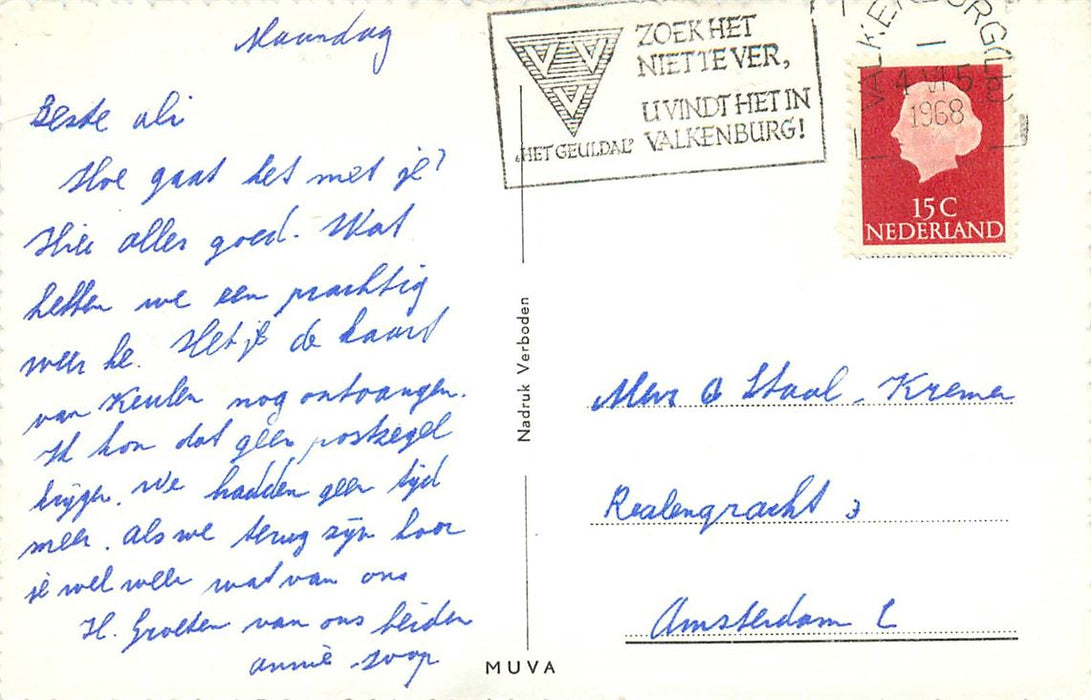 Maandag
Beste Ali
Hoe gaat het met je?
Hier alles goed. Wat
hebben we een prachtig
weer he. Heb je de kaart
van Keulen nog ontvangen.
Ik kon dat geen postzegel
krijgen. We hadden geen tijd
meer. Als we terug zijn hoor
je wel weer wat van ons
H. Groeten van ons beiden
Annie Joop
ZOEK HET
NIET TE VER,
U VINDT HET IN
VALKENBURG!
„HET GEULDAL"
VALKENBURG (L)
4 VI 5
1968
15 C
NEDERLAND
Nadruk Verboden
Mevr Staal - Kremer
Realengracht 3
Amsterdam C
MUVA